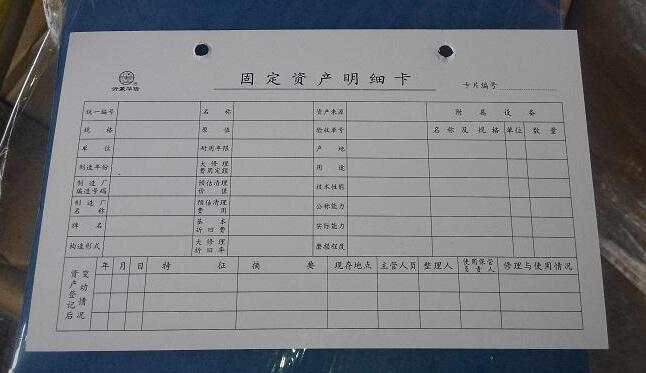 固定资产明细卡
卡片编号
统一编号 名称 资产来源 附属设备
规格 原值 验收单号 名称及规格 单位 数量
单位 耐用年限 产地
制造年份 大修理费用定额 用途
制造厂编造号码 预估清理价值 技术性能
制造厂名称 预估清理费用 公称能力
牌名 基本折旧费 实际能力
构造形式 大修理折旧率 磨损程度
资产登记后变动情况 年 月 日 特征 摘要 现存地点 主管人员 整理人 使用保管负责人 修理与使用情况